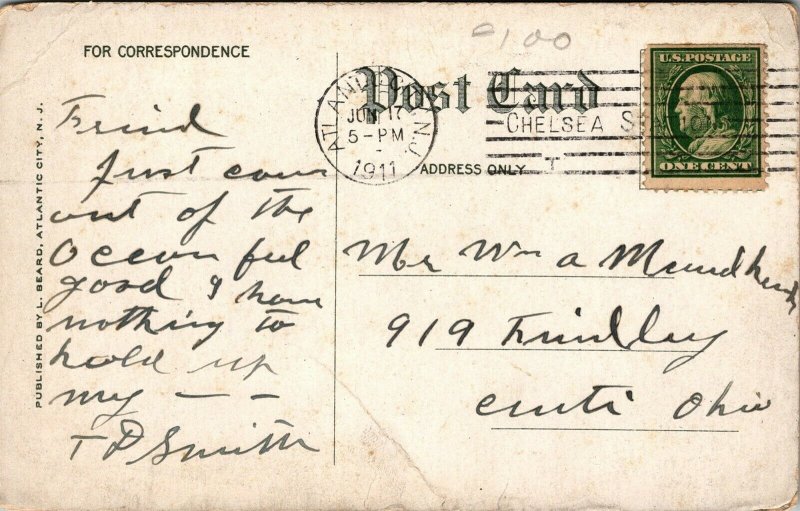 FOR CORRESPONDENCE
Post Card
ADDRESS ONLY
PUBLISHED BY L. BEARD, ATLANTIC CITY, N. J.
ATLANTIC N.J.
JUN 17
5-PM
1911
CHELSEA S
U.S. POSTAGE
ONE CENT
9/00
Freind
Just com
out of the
Ocean feel
good I have
nothing to
hold up
my — —
T P Smith
Mr Wm a
919 Findley
Cinti Ohio